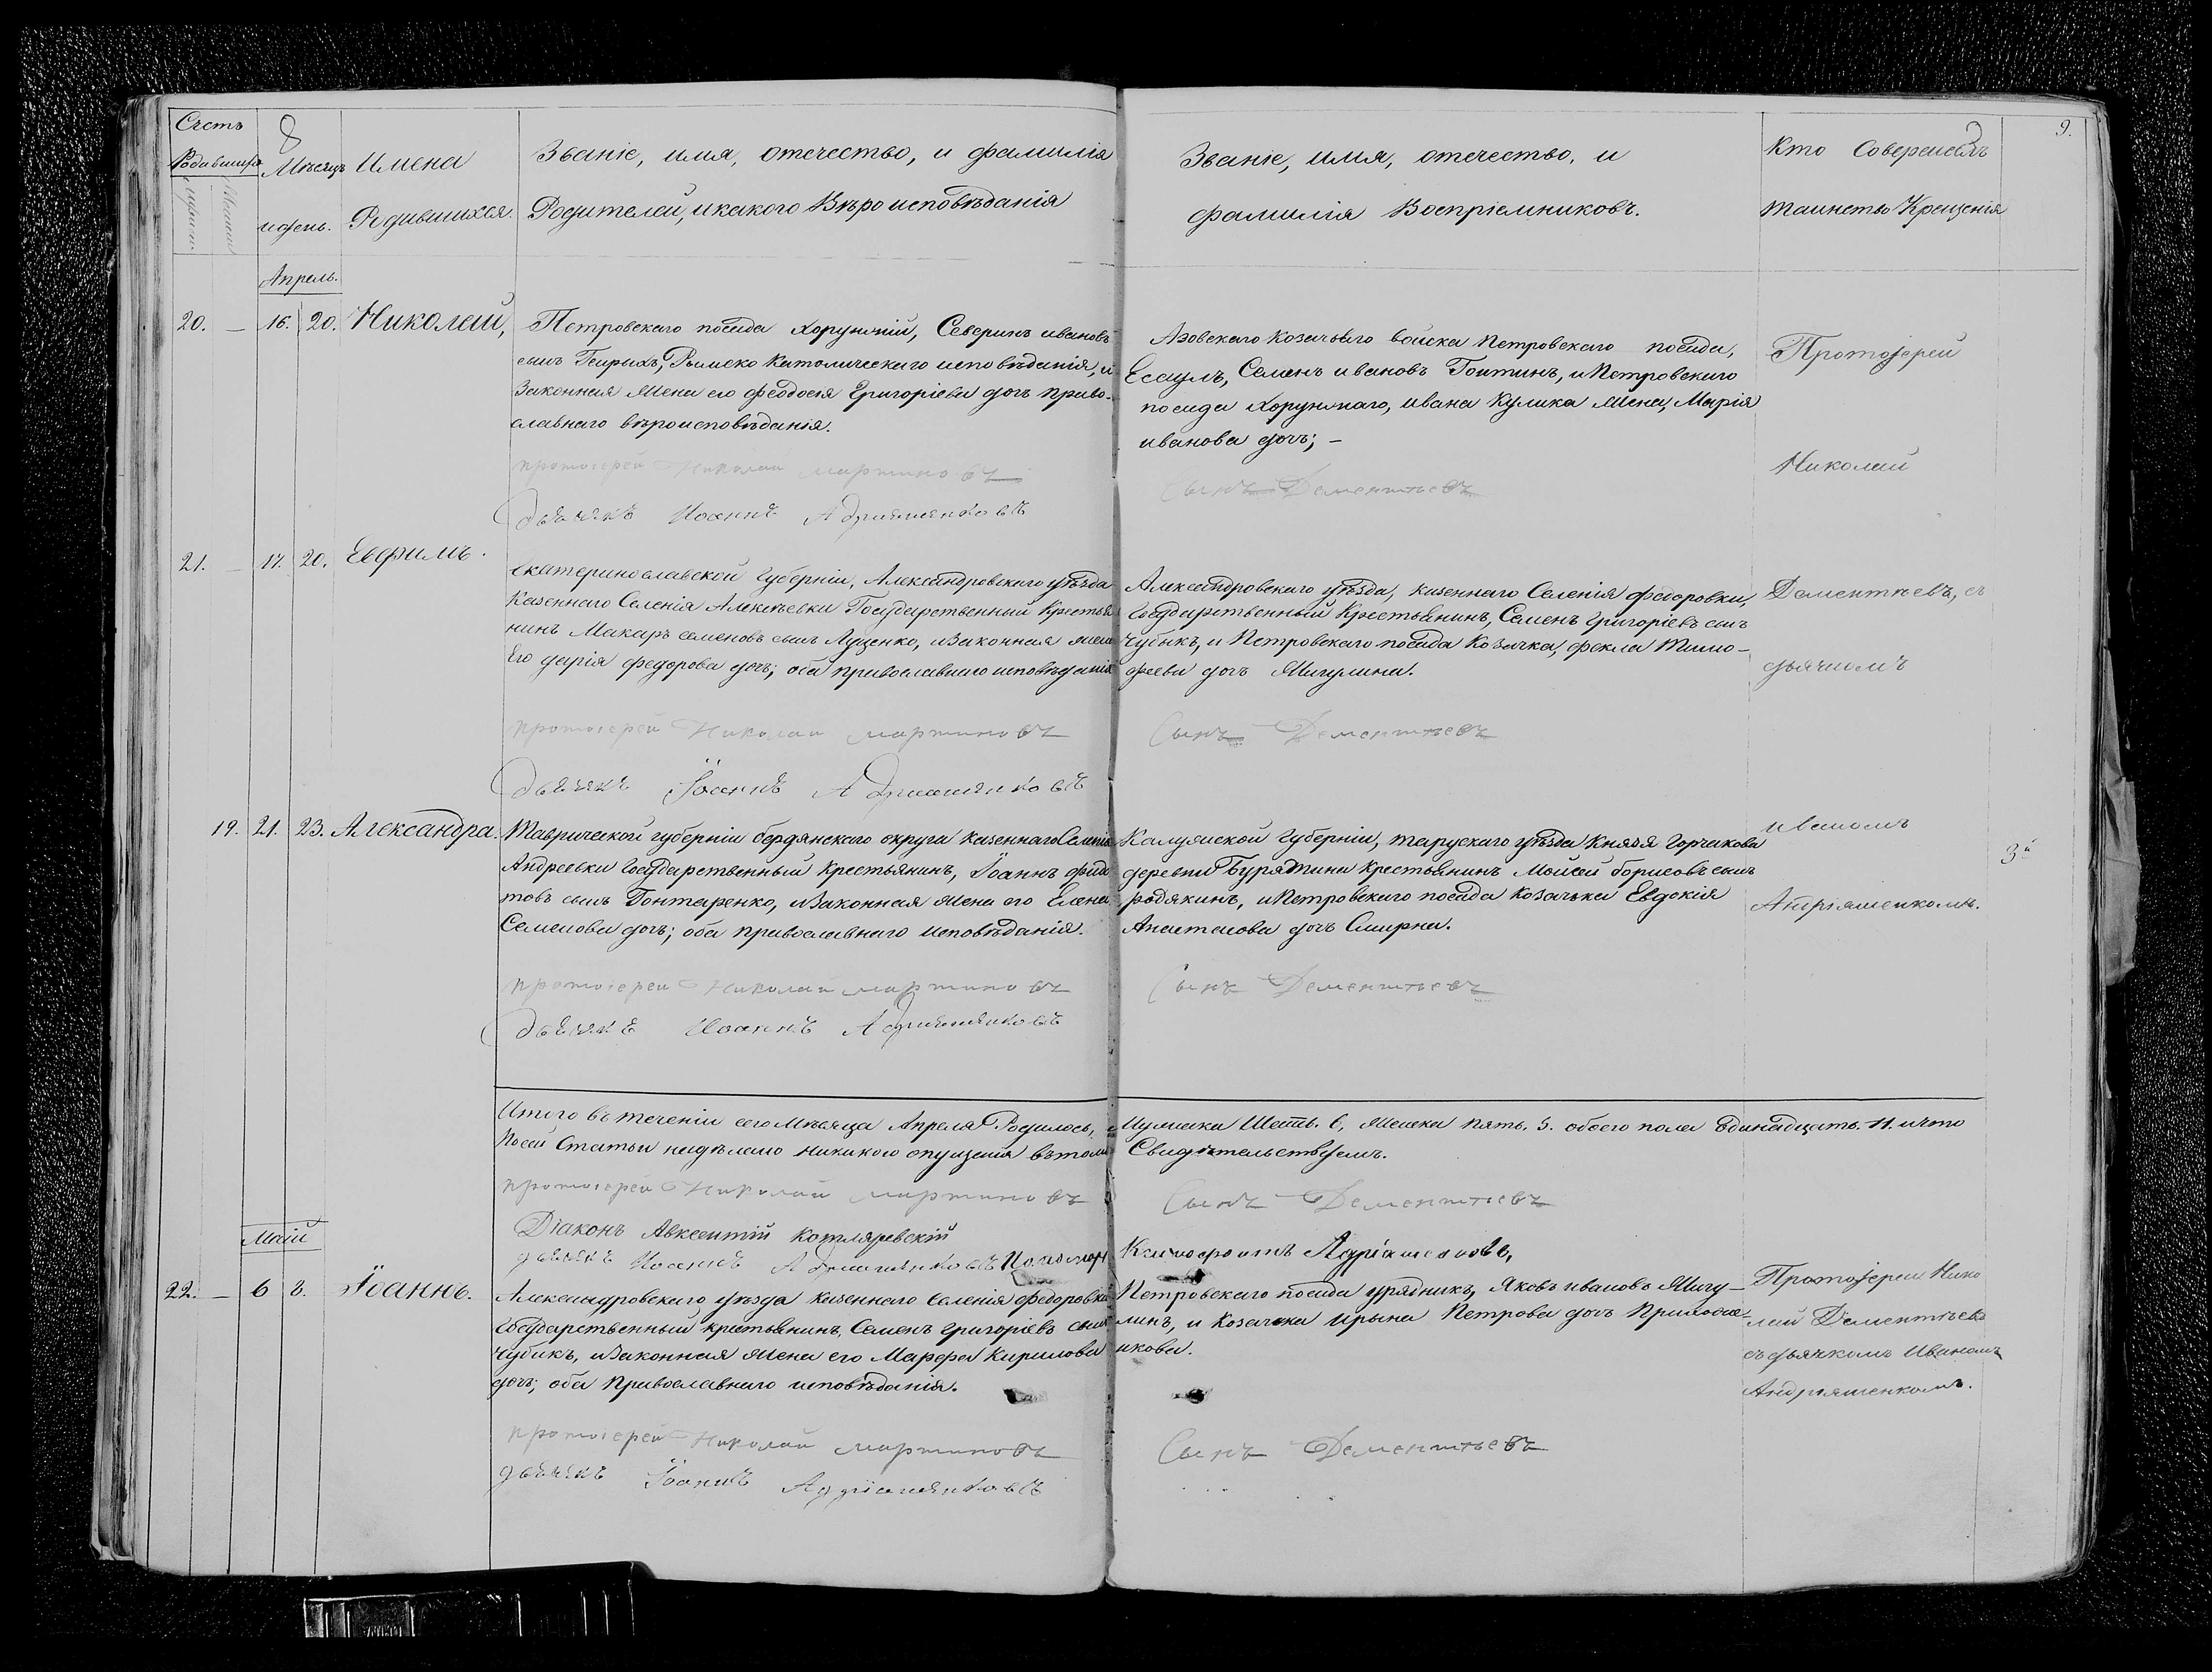 Счетъ
Родившихся
Мужеска
Женска
8
Мѣсяцъ
и день.
Имена
Родившихся.
Званіе, имя, отечество, и фамилія
Родителей, и какого Вѣроисповѣданія
Званіе, имя, отечество, и
фамилія Воспріемниковъ.
Кто Совершалъ
таинство Крещенія
9.
Апрель.
20. — 16. 20. Николай,
Петровскаго посада Хорунжій, Северинъ ивановъ
сынъ Римско Католическаго исповѣданія, и
Законная жена его Феодосія Григоріева дочь право-
славнаго вѣроисповѣданія.
Протоіерей Николай Мартиновъ
дьячекъ Иоаннъ Адріяшенковъ
Азовскаго Козачьяго войска Петровскаго посада,
Есаулъ, Семенъ ивановъ и Петровскаго
посада Хорунжаго, ивана Кулика жена, Марія
иванова дочь; –
Сынъ Дементьевъ
Протоіерей
Николай
21. — 17. 20. Евфимъ.
Екатеринославской Губерніи, Александровскаго уѣзда
Казеннаго Селенія Алексѣевки Государственный Крестья
нинъ Макаръ семеновъ сынъ Луценко, и Законная жена
Его дарія федорова дочь; оба православнаго исповѣданія
протоіерей Николай Мартиновъ
дьячекъ Іоаннъ Адріяшенковъ
Александровскаго уѣзда, казеннаго Селенія федоровки,
Государственный Крестьянинъ, Семенъ Григоріевъ сынъ
Чубикъ, и Петровскаго посада Козачка, фекла Тимо-
феева дочь Мигулина.
Сынъ Дементьевъ
Дементьевъ, съ
дьячкомъ
19. 21. 23. Александра.
Таврической губерніи бердянскаго округа казеннаго Селенія
Андреевки Государственный Крестьянинъ, Іоаннъ
товъ сынъ Гонтаренко, и Законная жена его Елена
Семенова дочь; оба православнаго исповѣданія.
протоіерей Николай Мартиновъ
дьячекъ Иоаннъ Адріяшенковъ
Калужской Губерніи, тарускаго уѣзда Князя Горчакова
деревни Бурятина Крестьянинъ Мойсей борисовъ сынъ
родякинъ, и Петровскаго посада козачька Евдокія
Анастасова дочь Смирна.
Сынъ Дементьевъ
иваномъ
Андріяшенкомъ.
Итого въ теченіи сего мѣсяца Апреля Родилось,
по сей Статьи надѣлано никакого опущенія въ томъ
протоіерей Николай Мартиновъ
Діаконъ Авксентій Котляревскій
дьячекъ Иоаннъ Адріяшенковъ Пономарь
Мужеска Шесть. 6, женска пять. 5. обоего пола Одинадцать. 11. и что
Свидѣтельствуемъ.
Сынъ Дементьевъ
Ксинофонтъ Адріашенковъ,
Маій
22. — 6 8. Іоаннъ.
Александровскаго уѣзда казеннаго селенія федоровки
Государственный крестьянинъ, Семенъ Григоріевъ сынъ
Чубикъ, и Законная жена его Марфа Кирилова
дочь; оба Православнаго исповѣданія.
протоіерей Николай Мартиновъ
дьячекъ Іоаннъ Адріяшенковъ
Петровскаго посада урядникъ, Яковъ ивановъ Мигу-
линъ, и Козачка Ирына Петрова дочь
икова.
Сынъ Дементьевъ
Протоіерей Нико
лай Дементьевъ
съ дьячкомъ Иваномъ
Андріяшенкомъ.